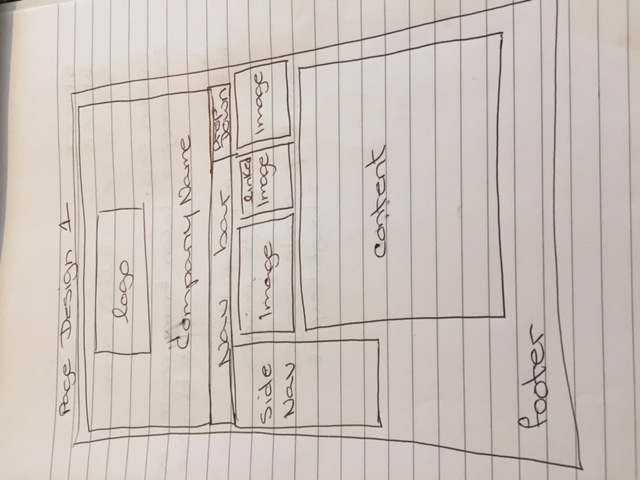 Page Design 1
logo
Company Name
Nav bar
Drop
Down
Side
Nav
image
linked
Image
Image
content
footer